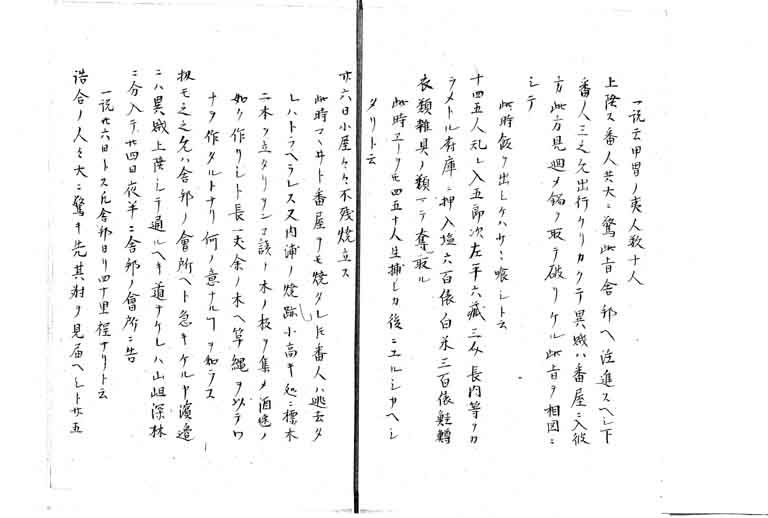 一説云甲冑ノ夷人数十人
上陸ス番人共大ニ驚此旨舎邦ヘ注進スヘシト
番人三之允出行クリカクテ異賊ハ番屋ニ入彼
方此方見廻メ鍋ヲ取テ破リケル此旨ヲ相図ニ
シテ
此時飯ヲ出シケハサ々喰シト云
十四五人乱レ入五郎次左平六蔵三助長内等カ
ラメトル有庫ニ押入塩六百俵白米三百俵鮭鱒
衣類雑具ノ類マテ奪取ル
此時ヱークモ四五十人生捕シカ後ニユルシカヘシ
タリト云
廿六日小屋々々不残焼立ス
此時マヰト番屋ヲモ焼タレ𪜈番人ハ逃去タ
レハトラヘラレス又内浦ノ焼跡小高キ処ニ標木
二本ヲ立タリ
如ク作リシト長一丈余ノ木ヘ竿縄ヲ以テワ
ナヲ作タルトナリ何ノ意ナルヿヲ知ラス
扨モ三之允ハ舎邦ノ會所ヘト急キケルカ濱邊
ニハ異賊上陸シテ通ルヘキ道ナケレハ山岨深林
ニ分入テ廿四日夜半ニ舎邦ノ會所ニ告
一説廿六日トス𪜈舎邦ヨリ四十里程ナリト云
詰合ノ人々大ニ驚キ先其対ヲ見届ヘシト廿五